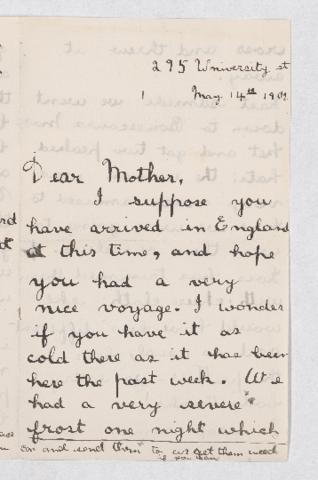 295 University st
May. 14th 1901.
Dear Mother,
I suppose you
have arrived in England
at this time, and hope
you had a very
nice voyage. I wonder
if you have it as
cold there as it has been
here the past week. We
had a very severe
frost one night which
can and send them to us get them weed
if you can